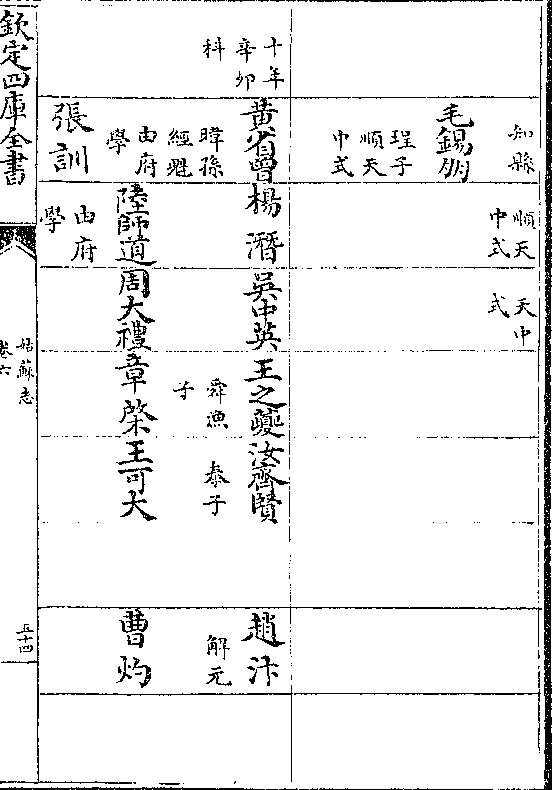 知縣
順天
中式
天中
式
毛錫朋
珵子
順天
中式
十年
辛卯
科
黃省曾
楊濳
吳中英
王之夔
汝齊賢
趙汴
暐孫
經魁
由府
學
舜漁
子
泰子
解元
陸師道
周大禮
章棨
王可大
曹灼
張訓
由府
學
欽定四庫全書
姑蘇志
卷六
五十四